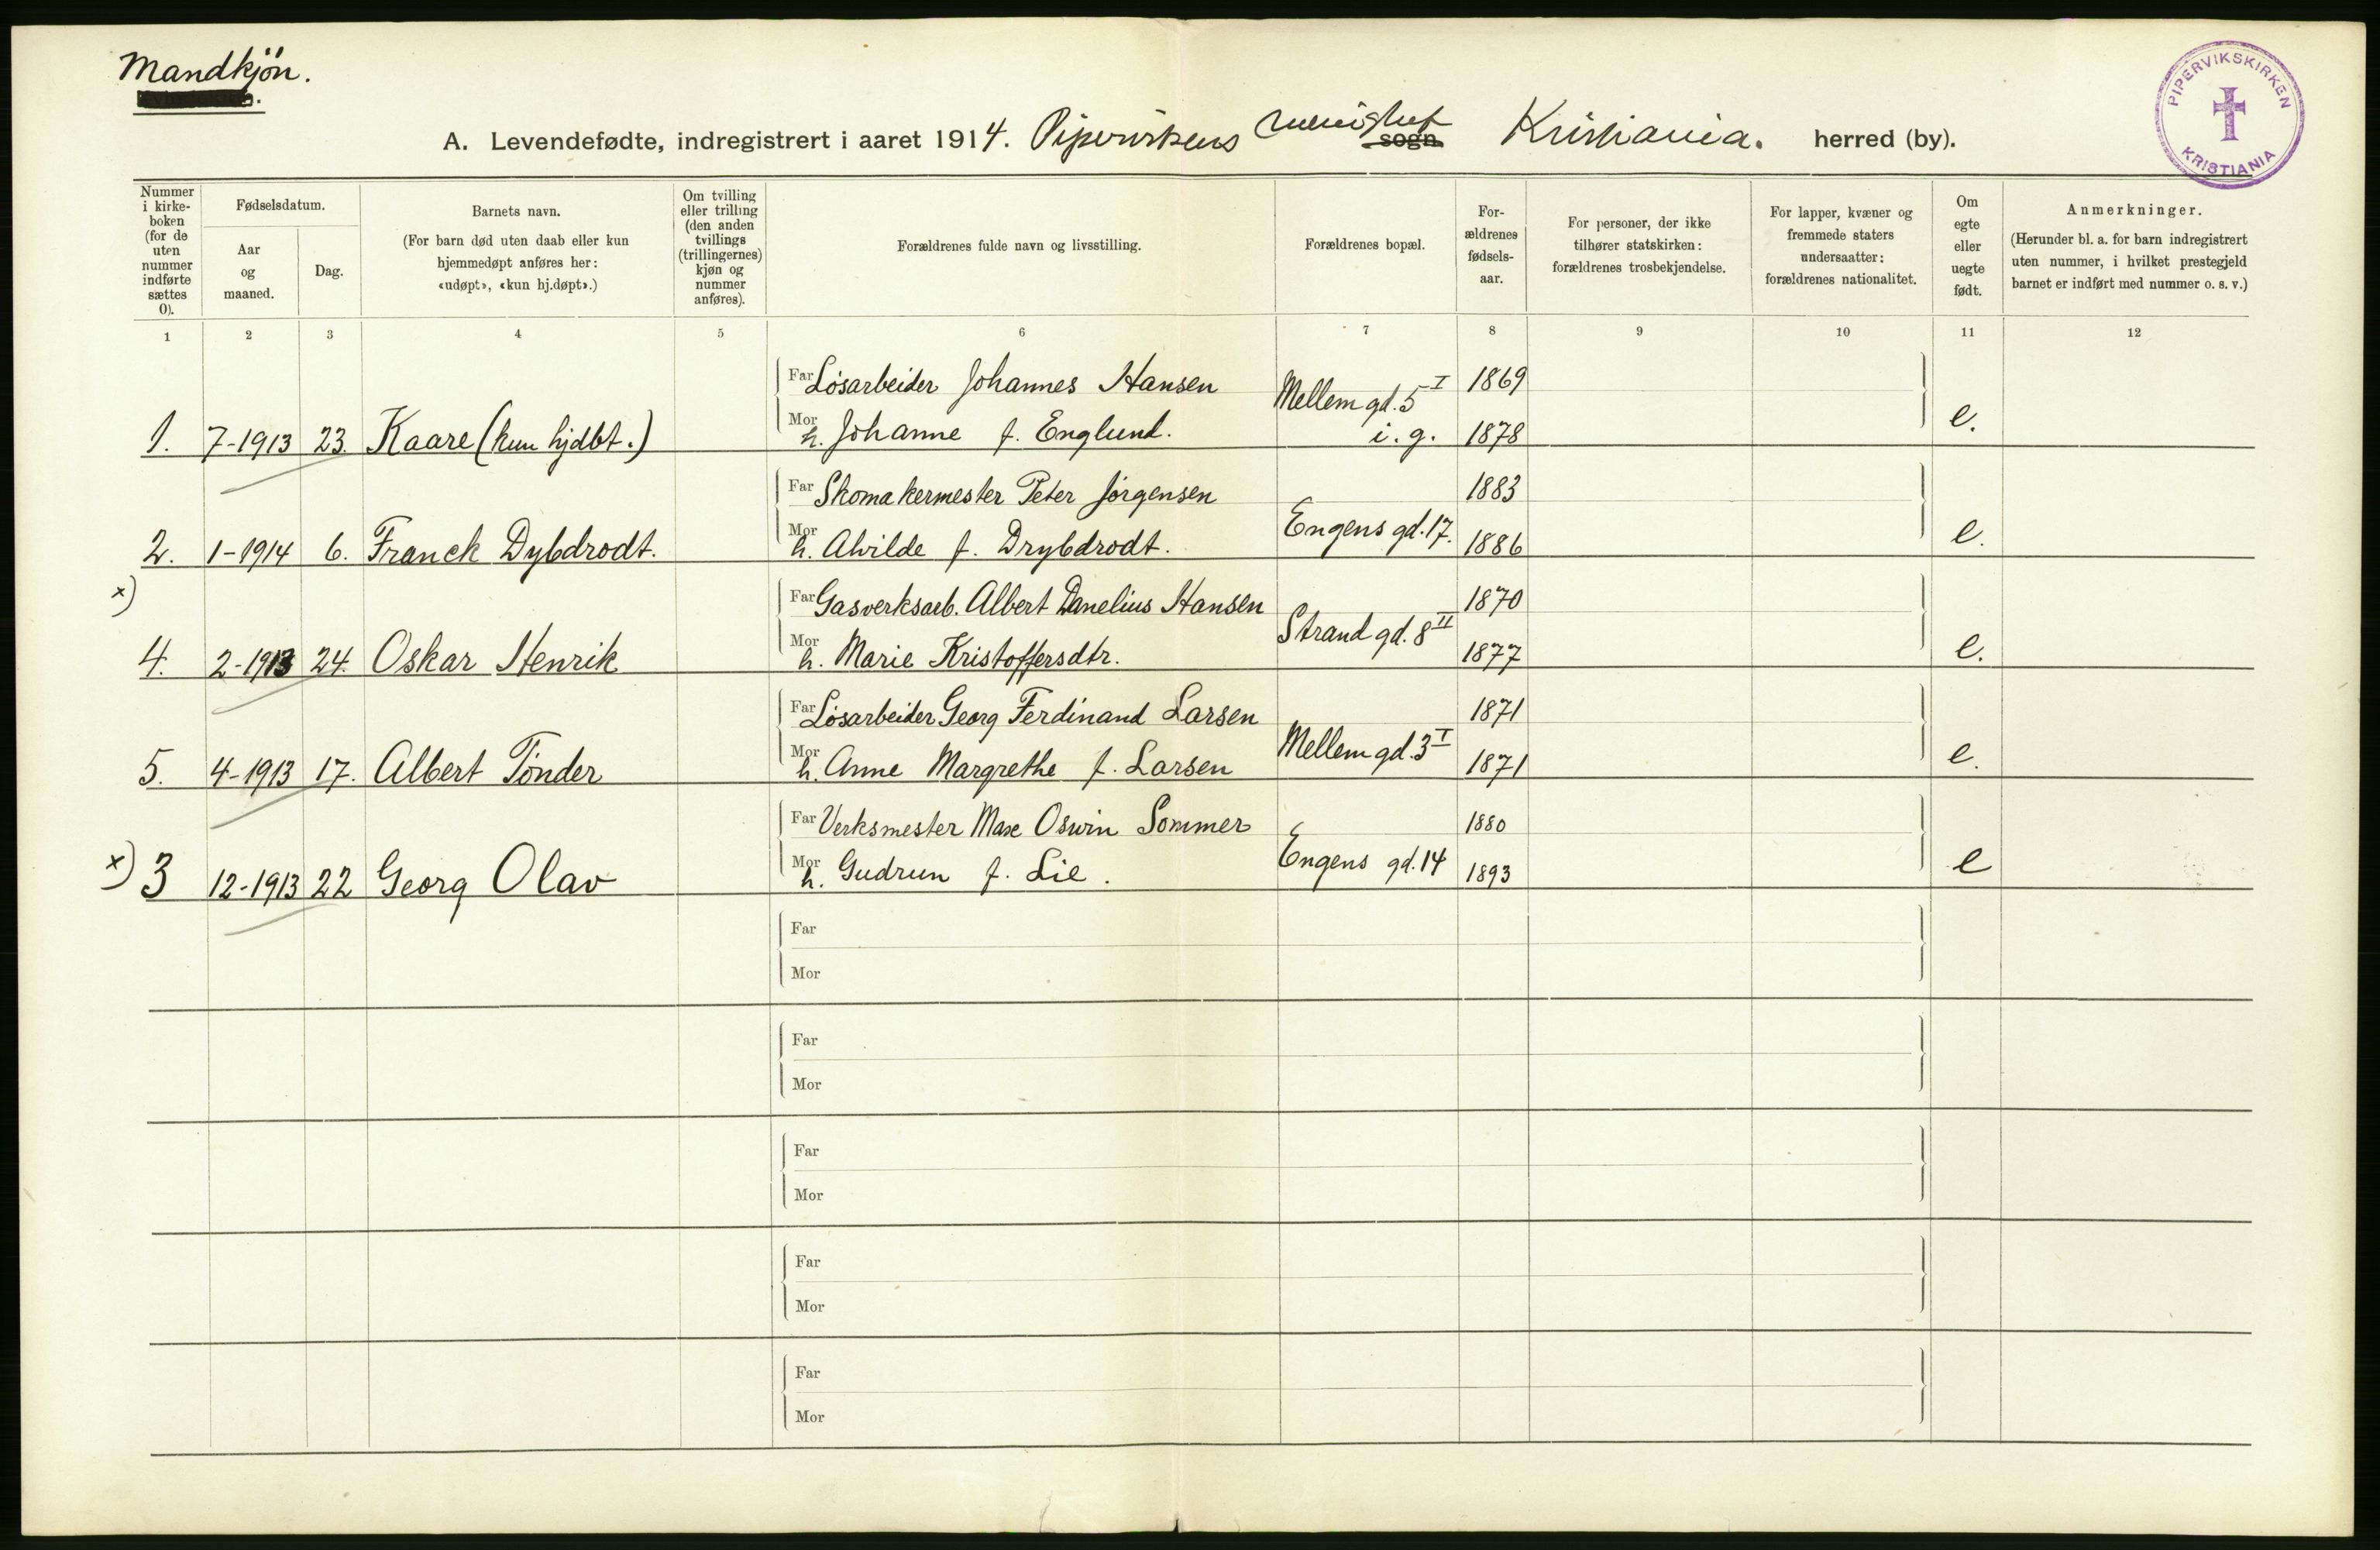 Mandkjön.
A. Levendefødte, indregistrert i aaret 1914. Pipervikens menighet sogn Kristiania. herred (by).
PIPERVIKSKIRKEN
KRISTIANIA
Nummer
i kirke-
boken
(for de
uten
nummer
indførte
sættes
0).
Fødselsdatum.
Aar
og
maaned.
Dag.
Barnets navn.
(For barn død uten daab eller kun
hjemmedøpt anføres her:
«udøpt», «kun hj.døpt».)
Om tvilling
eller trilling
(den anden
tvillings
(trillingernes)
kjøn og
nummer
anføres).
Forældrenes fulde navn og livsstilling.
Forældrenes bopæl.
For-
ældrenes
fødsels-
aar.
For personer, der ikke
tilhører statskirken:
forældrenes trosbekjendelse.
For lapper, kvæner og
fremmede staters
undersaatter:
forældrenes nationalitet.
Om
egte
eller
uegte
født.
Anmerkninger.
(Herunder bl. a. for barn indregistrert
uten nummer, i hvilket prestegjeld
barnet er indført med nummer o. s. v.)
1 2 3 4 5 6 7 8 9 10 11 12
Far Løsarbeider Johannes Hansen Mellem gd. 5 I 1869
1. 7-1913 23. Kaare (kun hjdbt.) Mor h. Johanne f. Englund. i. g. 1878 e.
Far Skomakermester Peter Jørgensen 1883
2. 1-1914 6. Franck Dybdrodt. Mor h. Alvilde f. Drybdrodt. Engens gd. 17. 1886 e.
x)
Far Gasverksarb. Albert Danelius Hansen 1870
4. 2-1913 24. Oskar Henrik Mor h. Marie Kristoffersdtr. Strand gd. 8 II 1877 e.
Far Løsarbeider Georg Ferdinand Larsen 1871
5. 4-1913 17. Albert Tönder Mor h. Anne Margrethe f. Larsen Mellem gd. 3 I 1871 e.
Far Verksmester Max Oswin Sommer 1880
x) 3 12-1913 22 Georg Olav Mor h. Gudrun f. Lie. Engens gd. 14 1893 e
Far
Mor
Far
Mor
Far
Mor
Far
Mor
Far
Mor